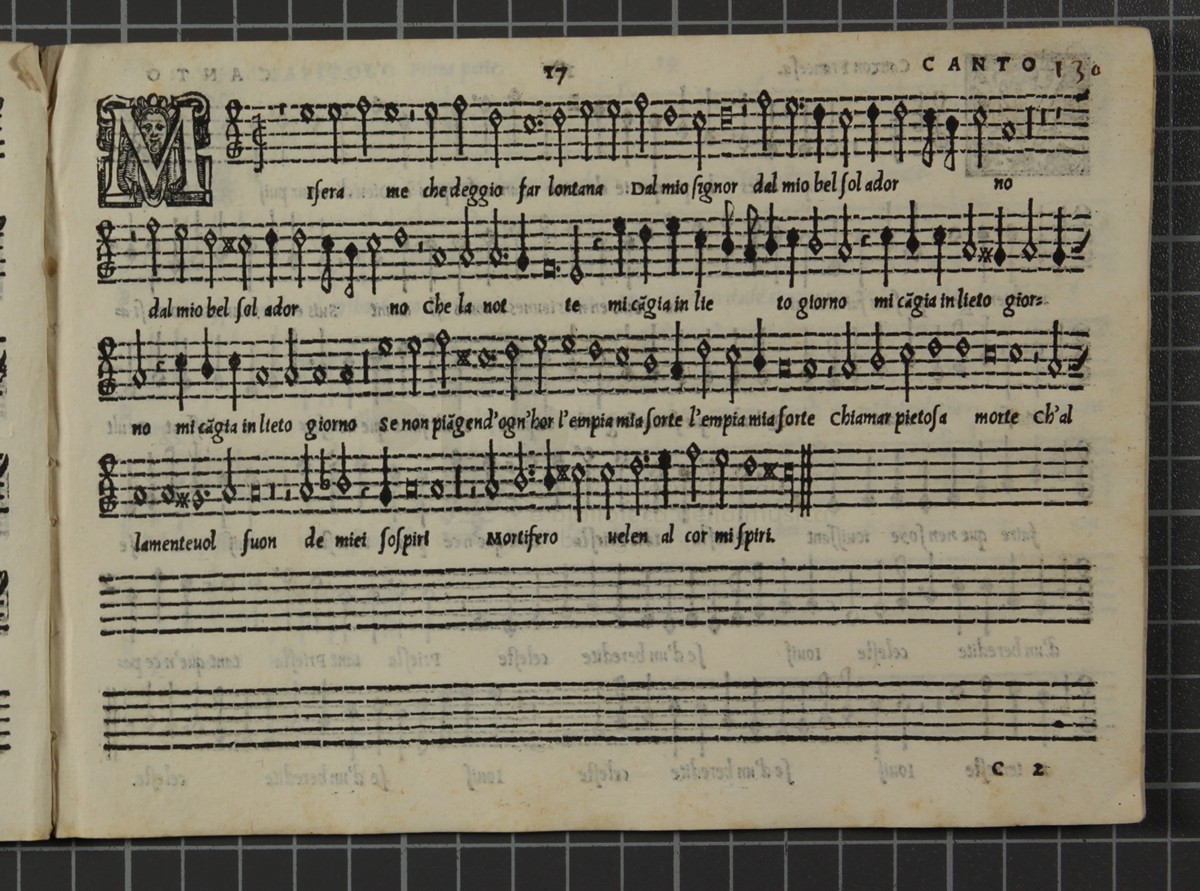 17 CANTO 130
MIsera me che deggio far lontana Dal mio signor dal mio bel sol ador no
dal mio bel sol ador no Che la not te mi cāgia in lie to giorno mi cāgia in lieto gior=
no mi cāgia in lieto giorno Se non piāgend'ogn'hor l'empia mia sorte l'empia mia sorte Chiamar pietosa morte Ch'al
lamenteuol suon de miei sospiri Mortifero uelen al cor mi spiri.
C 2